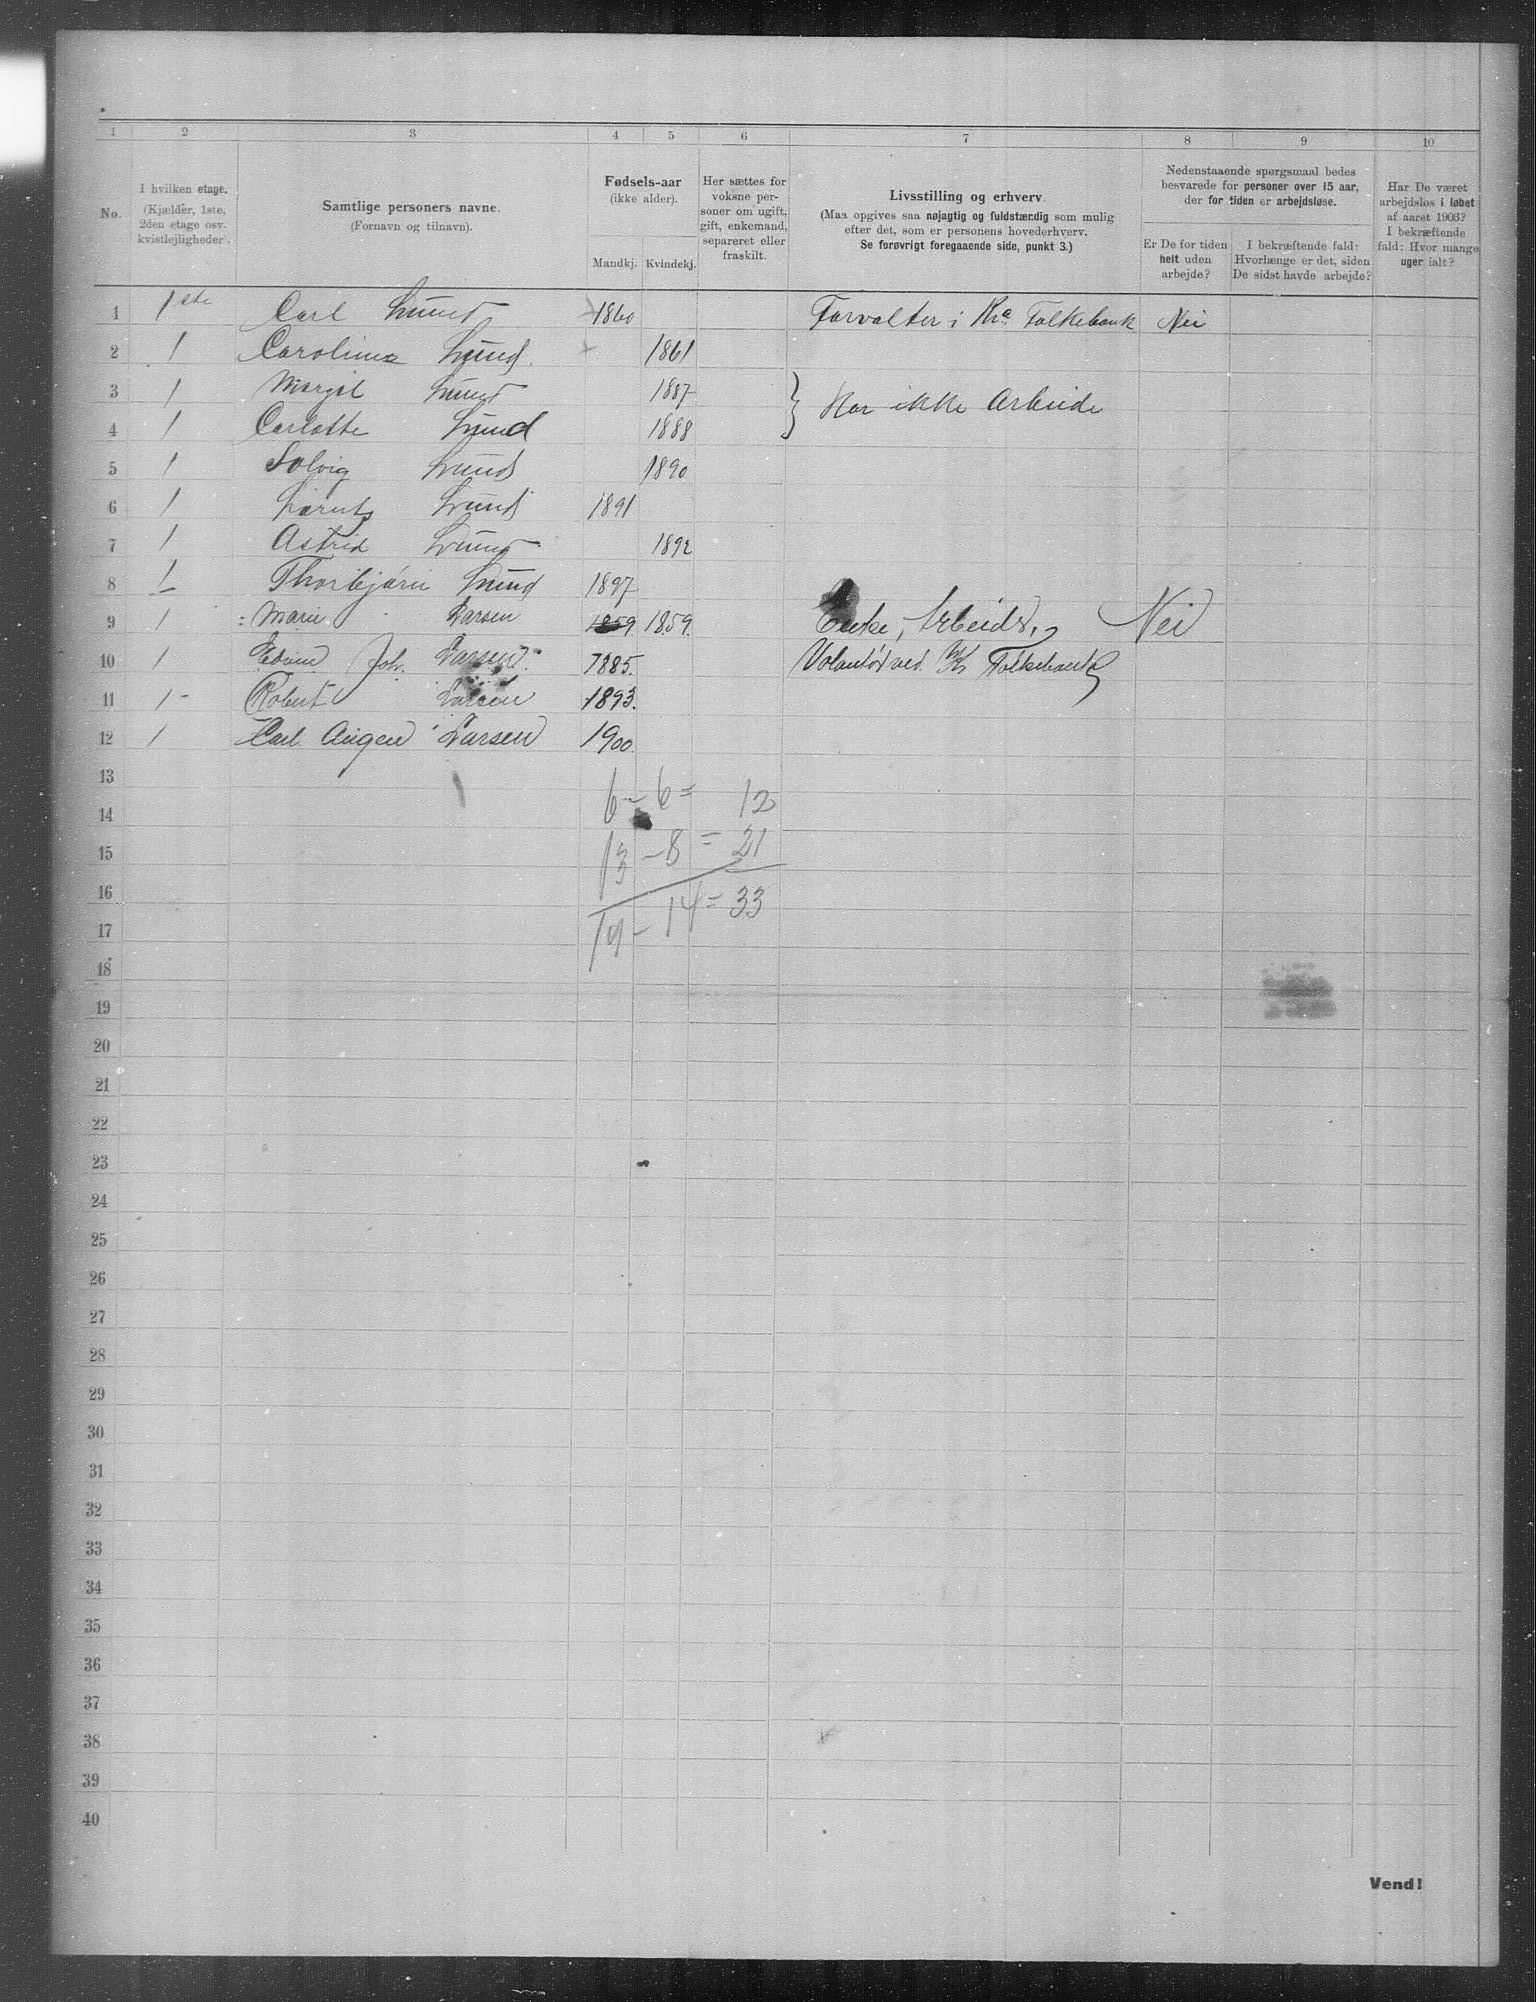 1 2 3 4 5 6 7 8 9 10
No.
I hvilken etage.
(Kjælder, 1ste,
2den etage osv.
kvistlejligheder).
Samtlige personers navne.
(Fornavn og tilnavn).
Fødsels-aar
(ikke alder).
Mandkj. Kvindekj.
Her sættes for
voksne per-
soner om ugift,
gift, enkemand,
separeret eller
fraskilt.
Livsstilling og erhverv.
(Maa opgives saa nøjagtig og fuldstændig som mulig
efter det, som er personens hovederhverv.
Se forøvrigt foregaaende side, punkt 3.)
Nedenstaaende spørgsmaal bedes
besvarede for personer over 15 aar,
der for tiden er arbejdsløse.
Er De for tiden
helt uden
arbejde?
I bekræftende fald:
Hvorlænge er det, siden
De sidst havde arbejde?
Har De været
arbejdsløs i løbet
af aaret 1903?
I bekræftende
fald: Hvor mange
uger ialt?
1 1ste Carl Lund 1860 Forvalter i Kra Folkebank Nei
2 1 Caroline Lund 1861
3 1 Margit Lund 1887
Har ikke Arbeide
4 1 Carlotte Lund 1888
5 1 Solvig Lund 1890
6 1 Lund 1891
7 1 Astrid Lund 1892
8 1 Thorbjørn Lund 1897
9 1 Marie Larsen 1859 1859. Enke, Arbeids, Nei
10 1 Edvin Joh. Larsen. 1885. Volontør ved Folkebank
11 1 - Robert Larsen 1893.
12 1 Carl Larsen 1900.
13
6 - 6 = 12
14
15
13 - 8 = 21
16
17
19 - 14 = 33
18
19
20
21
22
23
24
25
26
27
28
29
30
31
32
33
34
35
36
37
38
39
40
Vend!